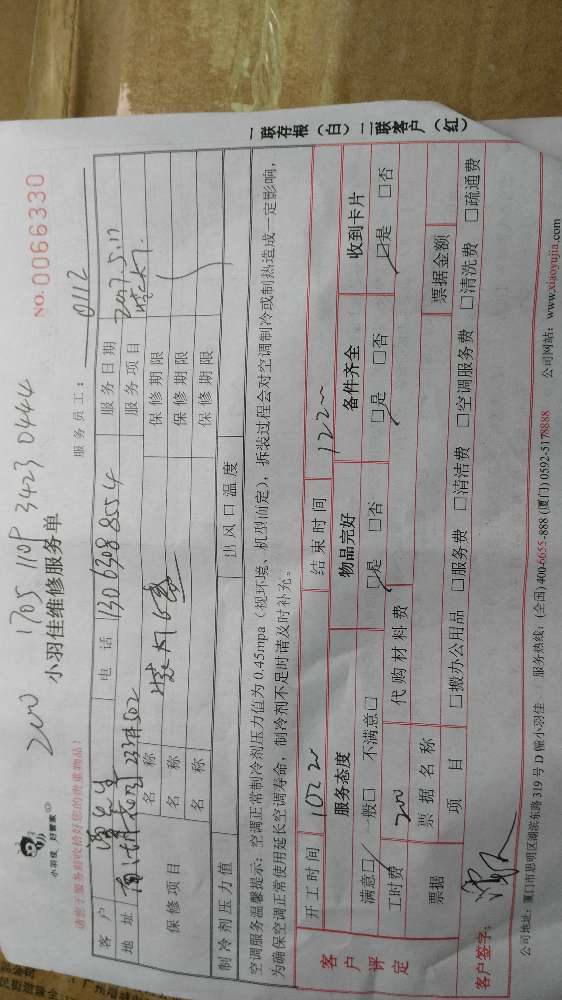 一联存根（白）二联客户（红）
200 1705 110P 3423 0444
小羽佳 好管家
小羽佳维修服务单
NO. 0066330
请您于服务前收拾好您的贵重物品！
服务员工： 0112
客户 先生 电话 13063088554 服务日期 2017.5.17
地址 233#502 服务项目
保修项目 名称 保修期限
名称 保修期限
名称 保修期限
制冷剂压力值 出风口温度
空调服务温馨提示：空调正常制冷剂压力值为0.45mpa（视环境、机型而定），拆装过程会对空调制冷或制热造成一定影响，
为确保空调正常使用延长空调寿命，制冷剂不足时请及时补充。
客户评定
开工时间 1022 结束时间 122
服务态度 物品完好 备件齐全 收到卡片
满意□ 一般□ 不满意□ □是 □否 □是 □否 □是 □否
工时费 200 代购材料费
票据 票据名称 票据金额
项目 □搬办公用品 □服务费 □清洁费 □空调服务费 □清洗费 □疏通费
客户签字：
公司地址：厦门市思明区湖滨东路319号D幢小羽佳 服务热线：(全国) 400-6655-888 (厦门) 0592-5178888 公司网站：www.xiaoyujia.com